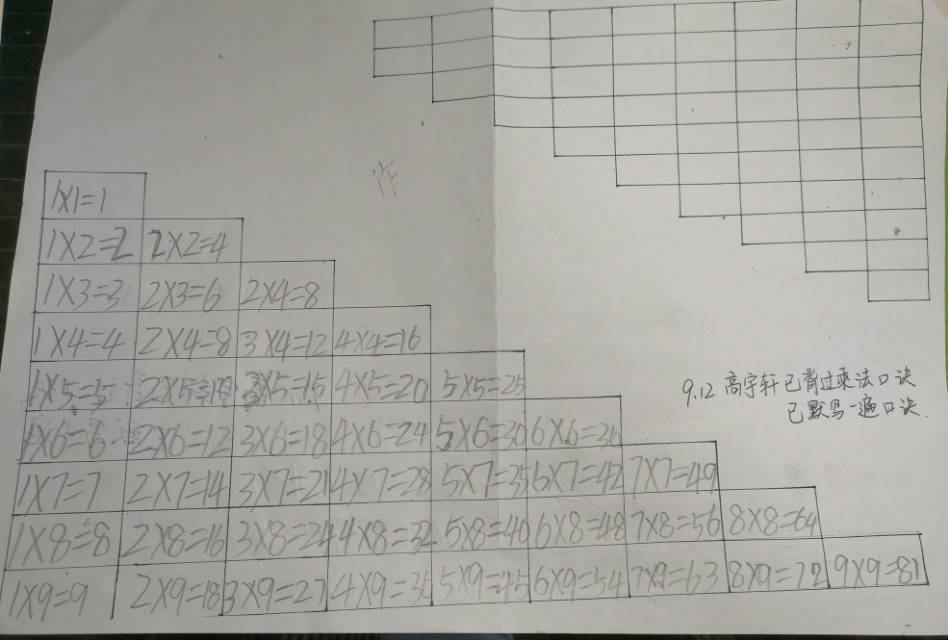 作
1×1=1
1×2=2 2×2=4
1×3=3 2×3=6 2×4=8
1×4=4 2×4=8 3×4=12 4×4=16
1×5=5 2×5=10 3×5=15 4×5=20 5×5=25
1×6=6 2×6=12 3×6=18 4×6=24 5×6=30 6×6=36
1×7=7 2×7=14 3×7=21 4×7=28 5×7=35 6×7=42 7×7=49
1×8=8 2×8=16 3×8=24 4×8=32 5×8=40 6×8=48 7×8=56 8×8=64
1×9=9 2×9=18 3×9=27 4×9=36 5×9=45 6×9=54 7×9=63 8×9=72 9×9=81
9.12 高宇轩已背过乘法口诀
已默写一遍口诀.